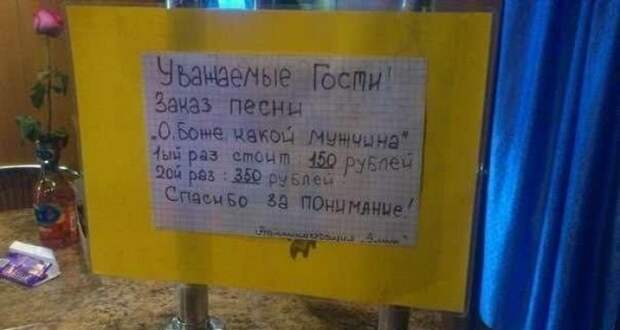 Уважаемые Гости!
Заказ песни
"О, Боже, какой мужчина"
1ый раз стоит 150 рублей
2ой раз: 350 рублей
Спасибо за понимание!